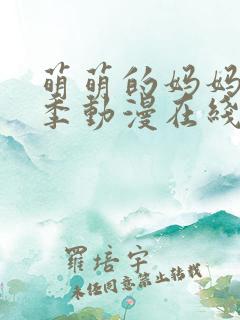 萌萌的妈妈
季動漫在綫
羅培宇
未经同意禁止转载